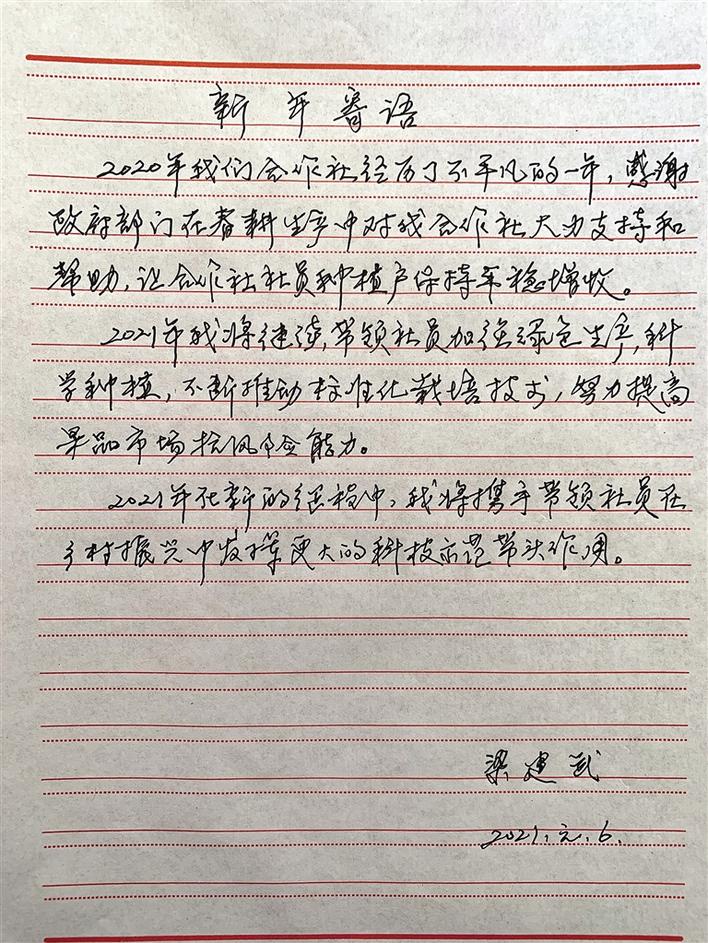 新年寄语
2020年我们合作社经历了不平凡的一年，感谢
政府部门在春耕生产中对我合作社大力支持和
帮助，让合作社社员种植户保持平稳增收。
2021年我将继续，带领社员加强绿色生产，科
学种植，不断推动标准化栽培技术，努力提高
果品市场抗风险能力。
2021年在新的征程中，我将携手带领社员在
乡村振兴中发挥更大的科技示范带头作用。
梁建武
2021.元.6.